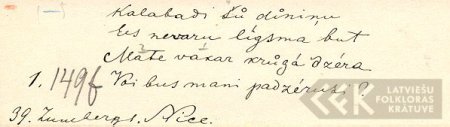 Kalabadi šū dīniņu
Es nevaru līgsma but
Māte vakar krūgā dzēra
1. 1496 Voi bus mani padzērusi?
39. Zumbergs. Nīce.
LATVIEŠU
FOLKLORAS
KRĀTUVE